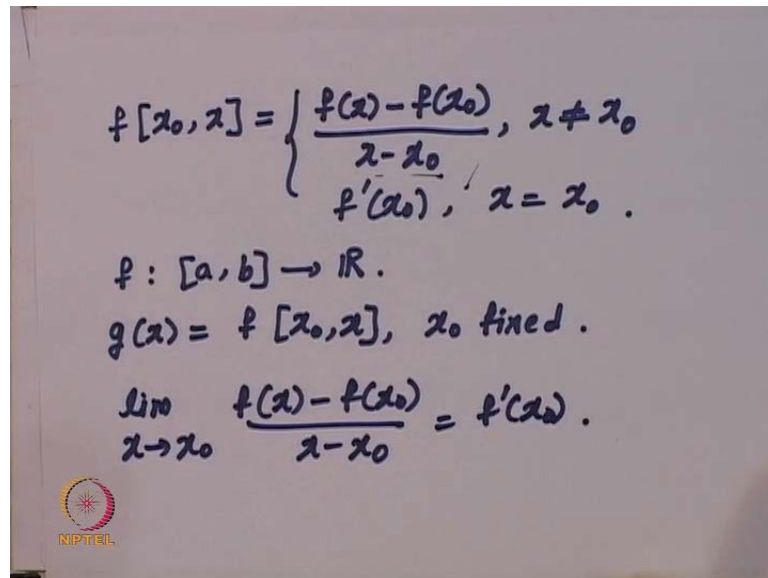 f[x₀, x] = { f(x) - f(x₀) / x - x₀ , x ≠ x₀
f'(x₀), x = x₀ .
f : [a, b] → ℝ.
g(x) = f [x₀, x], x₀ fixed .
lim x→x₀ f(x) - f(x₀) / x - x₀ = f'(x₀) .
NPTEL